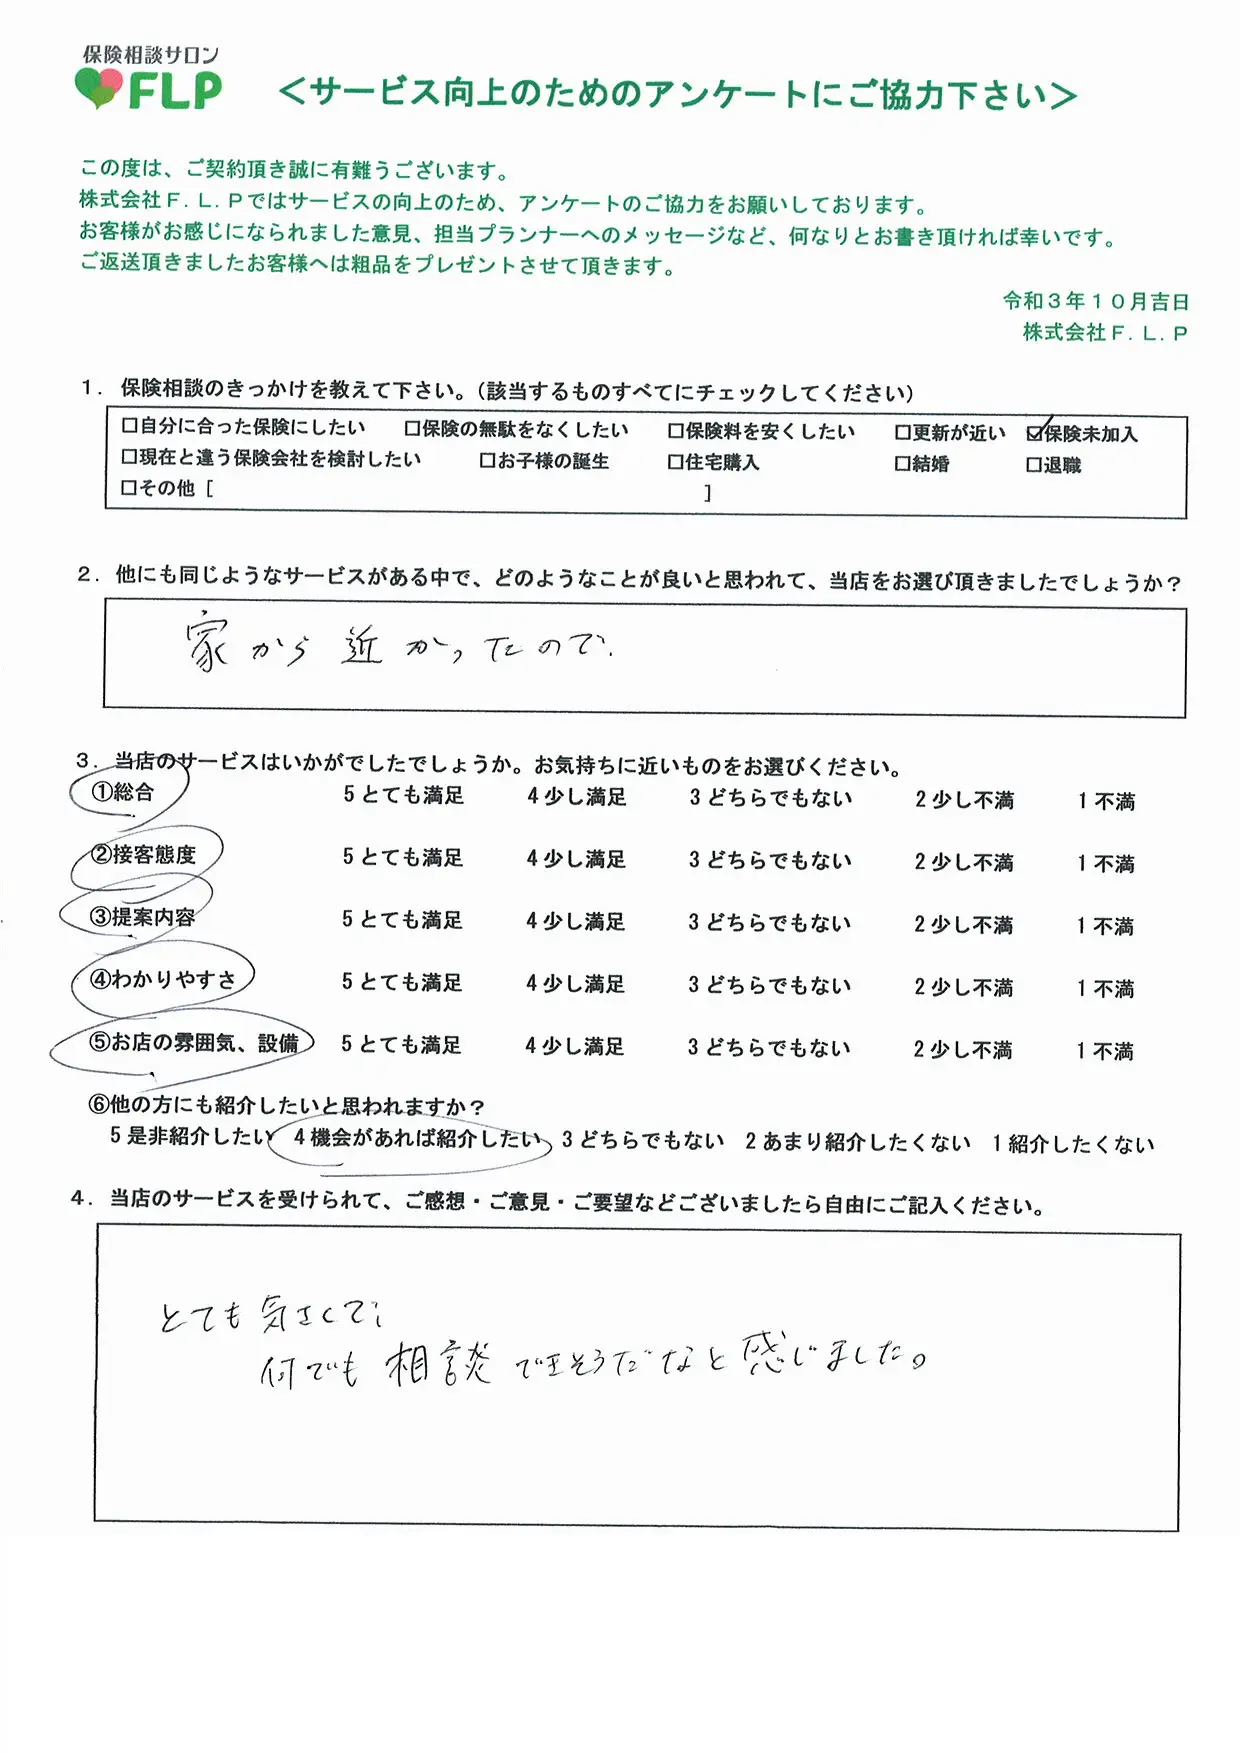 保険相談サロン
FLP
＜サービス向上のためのアンケートにご協力下さい＞
この度は、ご契約頂き誠に有難うございます。
株式会社Ｆ．Ｌ．Ｐではサービスの向上のため、アンケートのご協力をお願いしております。
お客様がお感じになられました意見、担当プランナーへのメッセージなど、何なりとお書き頂ければ幸いです。
ご返送頂きましたお客様へは粗品をプレゼントさせて頂きます。
令和３年１０月吉日
株式会社Ｆ．Ｌ．Ｐ
１．保険相談のきっかけを教えて下さい。（該当するものすべてにチェックしてください）
□自分に合った保険にしたい □保険の無駄をなくしたい □保険料を安くしたい □更新が近い ☑保険未加入
□現在と違う保険会社を検討したい □お子様の誕生 □住宅購入 □結婚 □退職
□その他［ ］
２．他にも同じようなサービスがある中で、どのようなことが良いと思われて、当店をお選び頂きましたでしょうか？
家から近かったので.
３．当店のサービスはいかがでしたでしょうか。お気持ちに近いものをお選びください。
①総合 5とても満足 4少し満足 3どちらでもない 2少し不満 1不満
②接客態度 5とても満足 4少し満足 3どちらでもない 2少し不満 1不満
③提案内容 5とても満足 4少し満足 3どちらでもない 2少し不満 1不満
④わかりやすさ 5とても満足 4少し満足 3どちらでもない 2少し不満 1不満
⑤お店の雰囲気、設備 5とても満足 4少し満足 3どちらでもない 2少し不満 1不満
⑥他の方にも紹介したいと思われますか？
5是非紹介したい 4機会があれば紹介したい 3どちらでもない 2あまり紹介したくない 1紹介したくない
４．当店のサービスを受けられて、ご感想・ご意見・ご要望などございましたら自由にご記入ください。
とても気さくで、
何でも相談できそうだなと感じました。